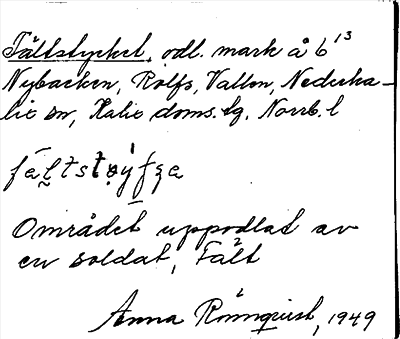 Fältstycket, odl. mark å 6¹³
Nybacken, Rolfs, Vallen, Nederka-
lix sn, Kalix doms. lg. Norrb. l
Området uppodlat av
en soldat, Fält
Anna Rönnqvist, 1949